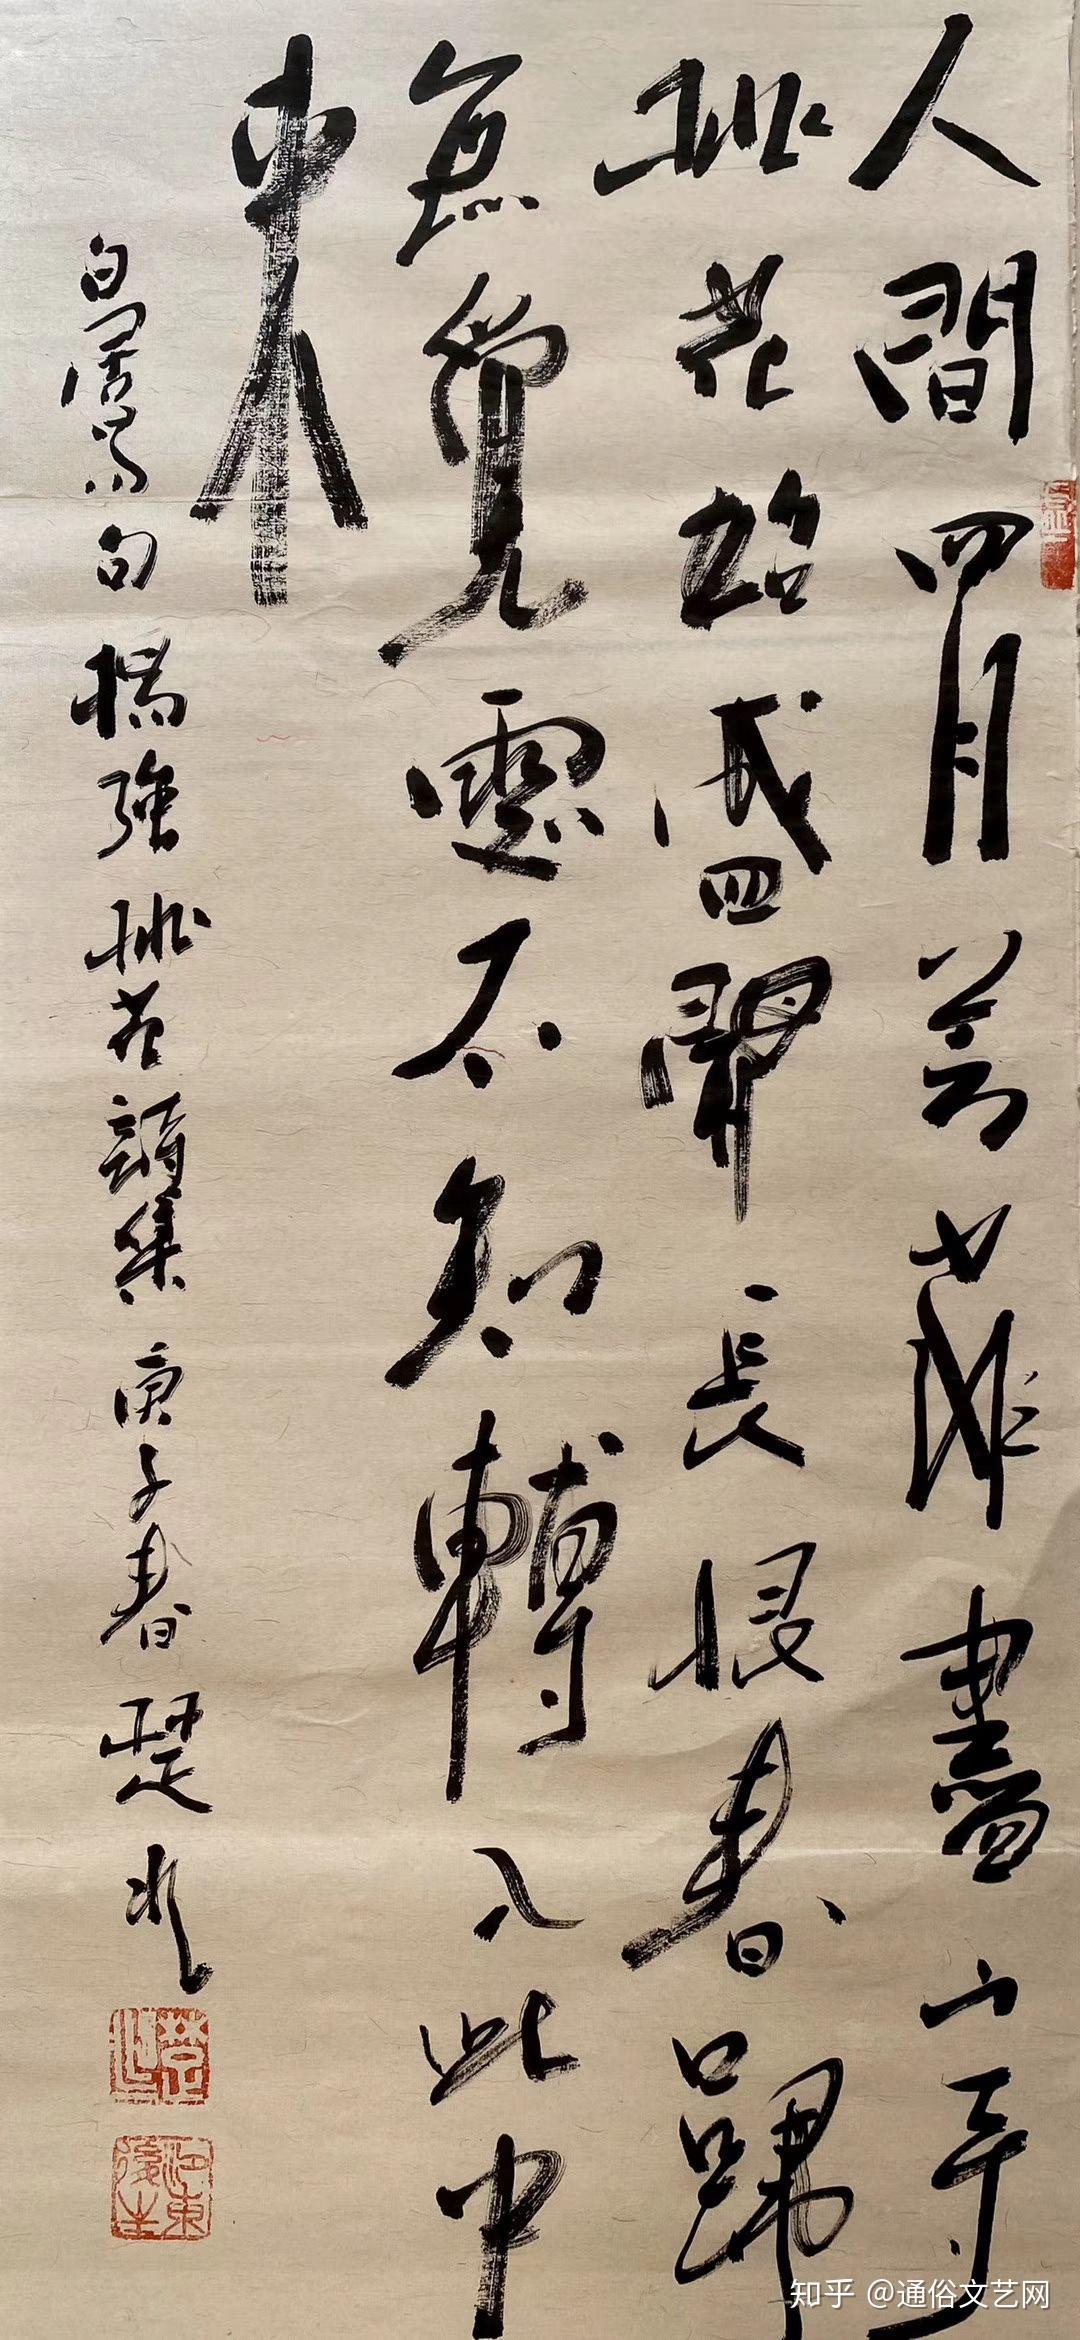 人間四月芳菲盡山寺
桃花始盛開長恨春歸
無覓處不知轉入此中
來
白居易句 桃花詩集 庚子春 楚
知乎 @通俗文艺网